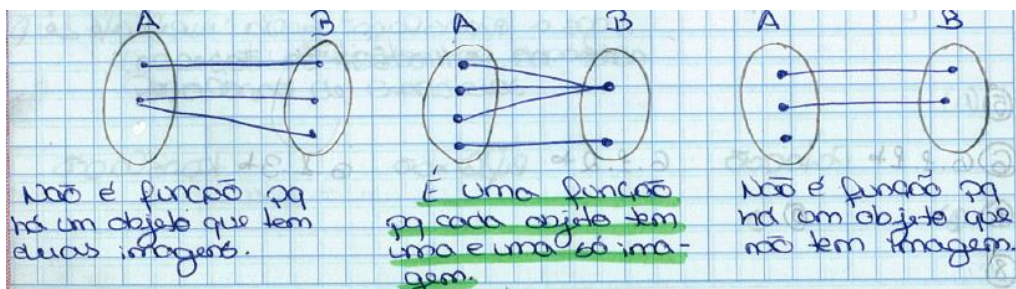 A B
Não é função pq
há um objeto que tem
duas imagens.
A B
É uma função
pq cada objeto tem
uma e uma só ima-
gem.
A B
Não é função pq
há um objeto que
não tem imagem.